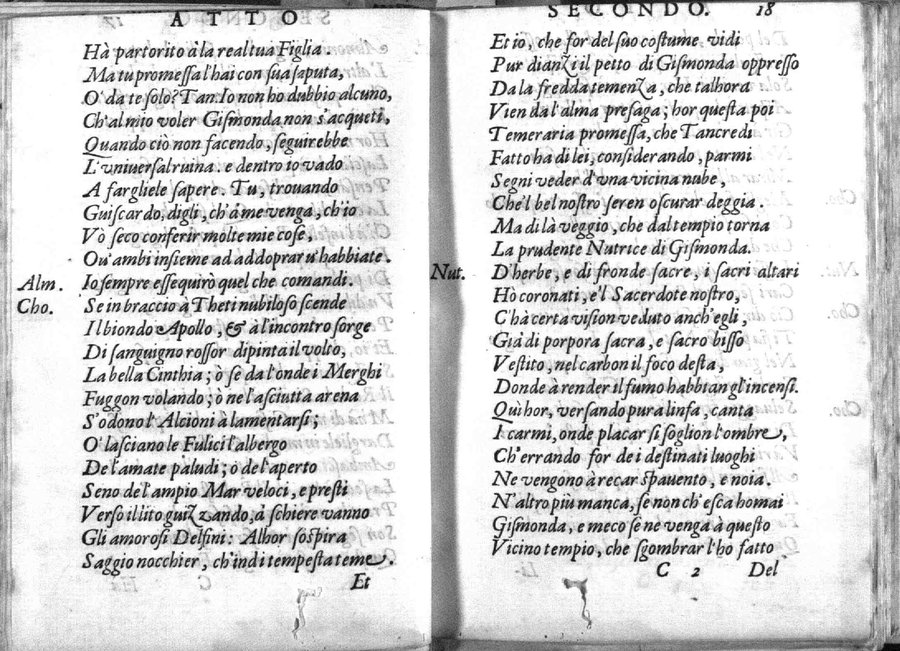 ATTO
Hà partorito à la real tua Figlia.
Ma tu promessa l'hai con sua saputa,
O' da te solo? Tan. Io non hò dubbio alcuno,
Ch'al mio voler Gismonda non s'acqueti,
Quando ciò non facendo, seguirebbe
L'universal ruina. e dentro io vado
A fargliele sapere. Tu, trouando
Guiscardo, digli, ch'à me venga, ch'io
Vò seco conferir molte mie cose,
Ou' ambi insieme ad addoprar u'habbiate.
Alm. Io sempre essequirò quel che comandi.
Cho. Se in braccio à Theti nubiloso scende
Il biondo Apollo, & à l'incontro sorge
Di sanguigno rossor dipinta il volto,
La bella Cinthia; ò se da l'onde i Merghi
Fuggon volando; ò ne l'asciutta arena
S'odono l'Alcioni à lamentarsi;
O' lasciano le Fulici l'albergo
De l'amate paludi; ò de l'aperto
Seno de l'ampio Mar veloci, e presti
Verso il lito guizzando, à schiere vanno
Gli amorosi Delfini: Alhor sospira
Saggio nocchier, ch'indi tempesta teme.
Et
SECONDO. 18
Et io, che for del suo costume vidi
Pur dianzi il petto di Gismonda oppresso
Da la fredda temenza, che talhora
Vien da l'alma presaga; hor questa poi
Temeraria promessa, che Tancredi
Fatto ha di lei, considerando, parmi
Segni veder d'vna vicina nube,
Che'l bel nostro seren oscurar deggia.
Ma di là veggio, che dal tempio torna
La prudente Nutrice di Gismonda.
Nut. D'herbe, e di fronde sacre, i sacri altari
Hò coronati, e'l Sacerdote nostro,
C'hà certa vision veduto anch'egli,
Già di porpora sacra, e sacro bisso
Vestito, nel carbon il foco desta,
Donde à render il fumo habbian gl'incensi.
Quì hor, versando pura linfa, canta
I carmi, onde placar si soglion l'ombre,
Ch'errando for de i destinati luoghi
Ne vengono à recar spauento, e noia.
N'altro più manca, se non ch'esca homai
Gismonda, e meco se ne venga à questo
Vicino tempio, che sgombrar l'ho fatto
C 2 Del